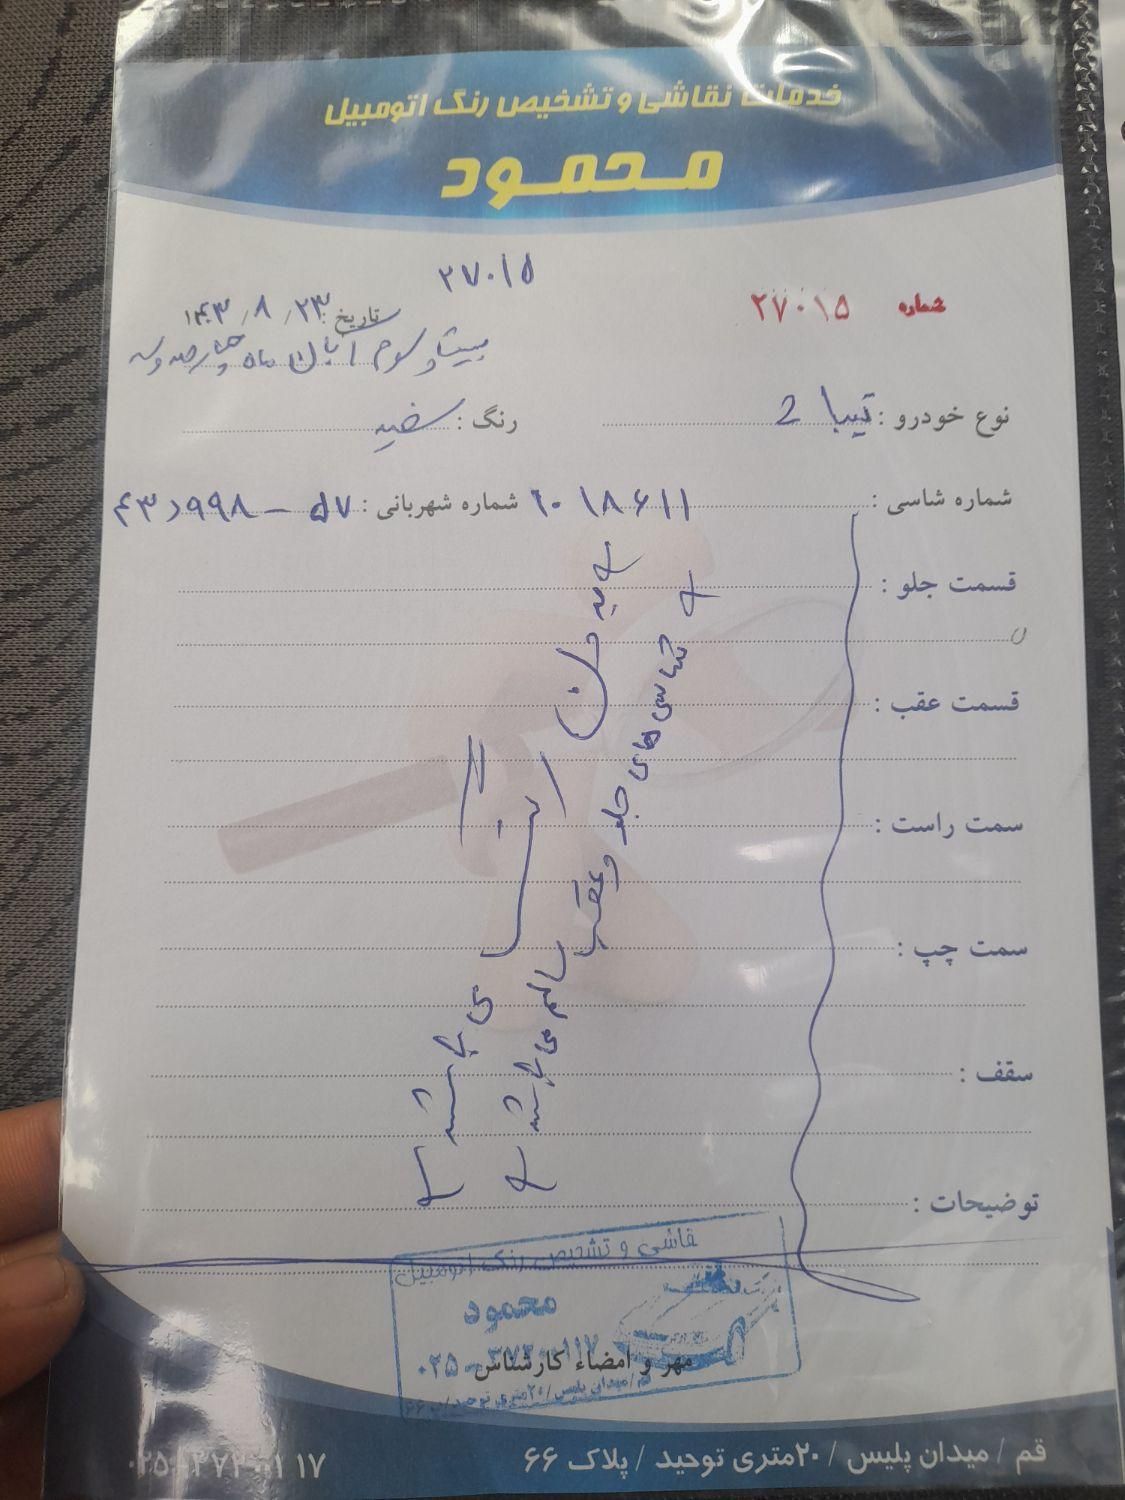 خدمات نقاشی و تشخیص رنگ اتومبیل
محمود
۲۷۰۱۵
شماره ۲۷۰۱۵
تاریخ: ۱۴۰۳/۸/۲۳
بیست و سوم آبان ماه چهارصد و سه
نوع خودرو : تیبا 2
رنگ : سفید
شماره شاسی : ۱۰۱۸۶۱۱
شماره شهربانی : ۴۳د۹۹۸ - ۵۷
قسمت جلو :
قسمت عقب :
سمت راست :
سمت چپ :
سقف :
توضیحات :
شاسی های جلو و عقب سالم می باشد
بدون رنگ می باشد
نقاشی و تشخیص رنگ اتومبیل
محمود
۰۲۵-۳۷۲۰۰۱۱۷
مهر و امضاء کارشناس
قم/میدان پلیس/۲۰متری توحید/پ ۶۶
قم / میدان پلیس / ۲۰متری توحید / پلاک ۶۶
۰۲۵-۳۷۲۰۰۱۱۷